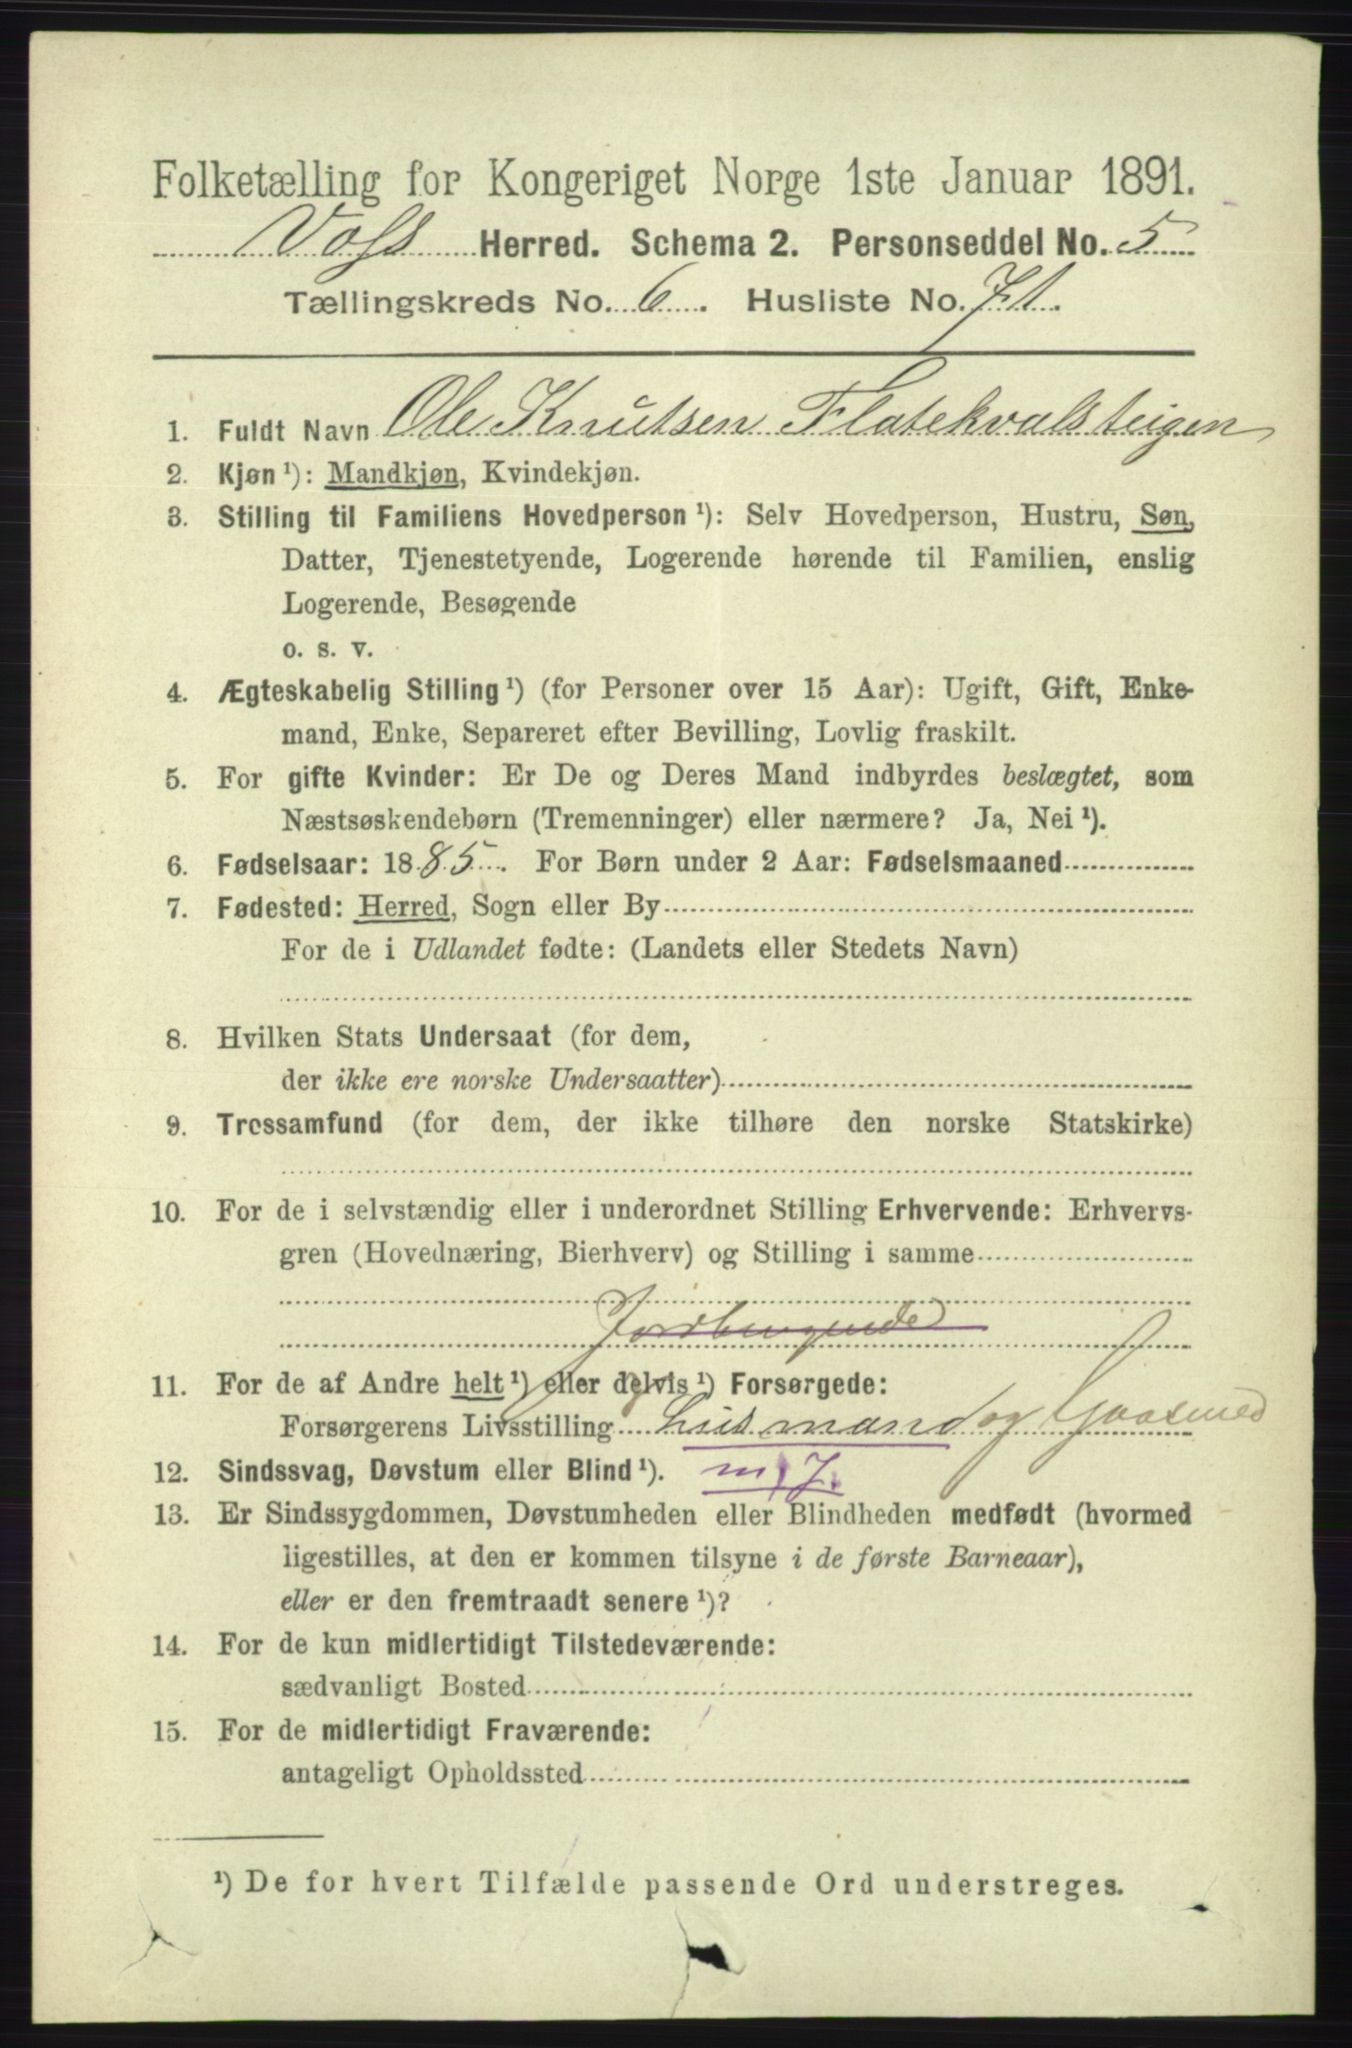 Folketælling for Kongeriget Norge 1ste Januar 1891.
Voss Herred. Schema 2. Personseddel No. 5
Tællingskreds No. 6. Husliste No. 71.
1. Fuldt Navn Ole Knutsen Flatekvalsteigen
2. Kjøn ¹): Mandkjøn, Kvindekjøn.
3. Stilling til Familiens Hovedperson ¹): Selv Hovedperson, Hustru, Søn,
Datter, Tjenestetyende, Logerende hørende til Familien, enslig
Logerende, Besøgende
o. s. v.
4. Ægteskabelig Stilling ¹) (for Personer over 15 Aar): Ugift, Gift, Enke-
mand, Enke, Separeret efter Bevilling, Lovlig fraskilt.
5. For gifte Kvinder: Er De og Deres Mand indbyrdes beslægtet, som
Næstsøskendebørn (Tremenninger) eller nærmere? Ja, Nei ¹).
6. Fødselsaar: 1885. For Børn under 2 Aar: Fødselsmaaned
7. Fødested: Herred, Sogn eller By
For de i Udlandet fødte: (Landets eller Stedets Navn)
8. Hvilken Stats Undersaat (for dem,
der ikke ere norske Undersaatter)
9. Trossamfund (for dem, der ikke tilhøre den norske Statskirke)
10. For de i selvstændig eller i underordnet Stilling Erhvervende: Erhvervs-
gren (Hovednæring, Bierhverv) og Stilling i samme
Jordbrugende
11. For de af Andre helt ¹) eller delvis ¹) Forsørgede:
Forsørgerens Livsstilling Husmand og
12. Sindssvag, Døvstum eller Blind ¹). m. J.
13. Er Sindssygdommen, Døvstumheden eller Blindheden medfødt (hvormed
ligestilles, at den er kommen tilsyne i de første Barneaar),
eller er den fremtraadt senere ¹)?
14. For de kun midlertidigt Tilstedeværende:
sædvanligt Bosted
15. For de midlertidigt Fraværende:
antageligt Opholdssted
¹) De for hvert Tilfælde passende Ord understreges.